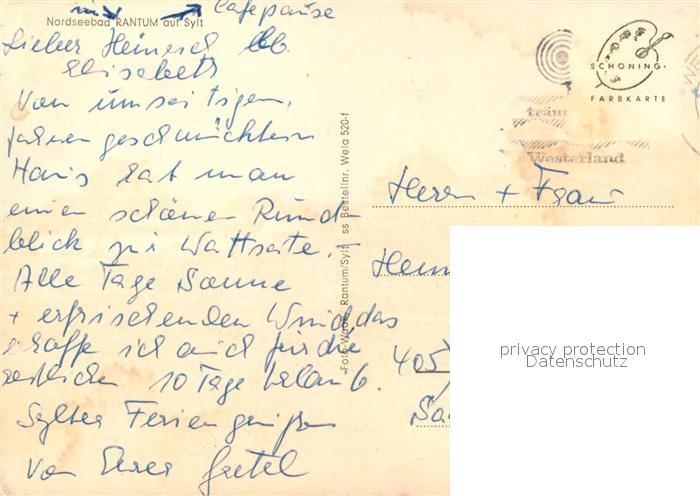 in Cafepause
Nordseebad RANTUM auf Sylt
Lieber Heinrich lb.
Elisabeth
Von umseitigen,
fahnengeschmückten
Haus hat man
einen schönen Rund-
blick zur Wattseite.
Alle Tage Sonne
+ erfrischenden Wind, das
schaffe ich auch für die
restlichen 10 Tage Urlaub.
Sylter Feriengrüße
Von Eurer Gretel
Foto Wagner, Rantum/Sylt ss Bestellnr. Wela 520-f
SCHÖNING
FARBKARTE
träum
Westerland
Herrn + Frau
Hein
405
privacy protection
Datenschutz